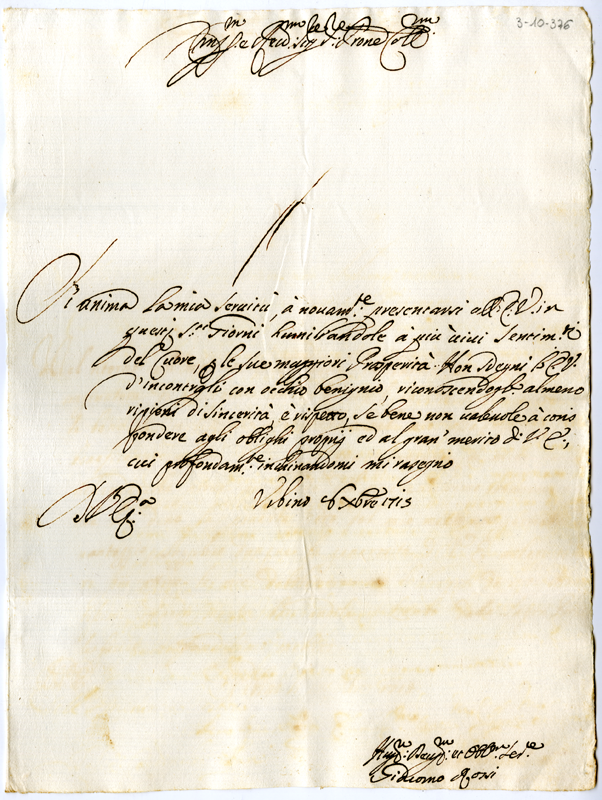 3-10-376
Si anima la mia servitù, à nouam.te presentarsi all'E.V. in
questi S.ti Giorni humiliandole à più viui sentim.ti
del Cuore, p le sue maggiori Prosperità. Non sdegni l'E.V.
d'incontrargli con occhio benigno, riconoscendogli almeno
ripieni di sincerità, è rispetto, se bene non ualeuole à corris
pondere agli oblighi proprij ed al gran merito di V.E.,
cui profondam.te inchinandomi mi rasegno
Di V.E.a
Vrbino 16 Xbre 1713
Hum.mo Deu.mo et Obb.mo Ser.re
Giacomo